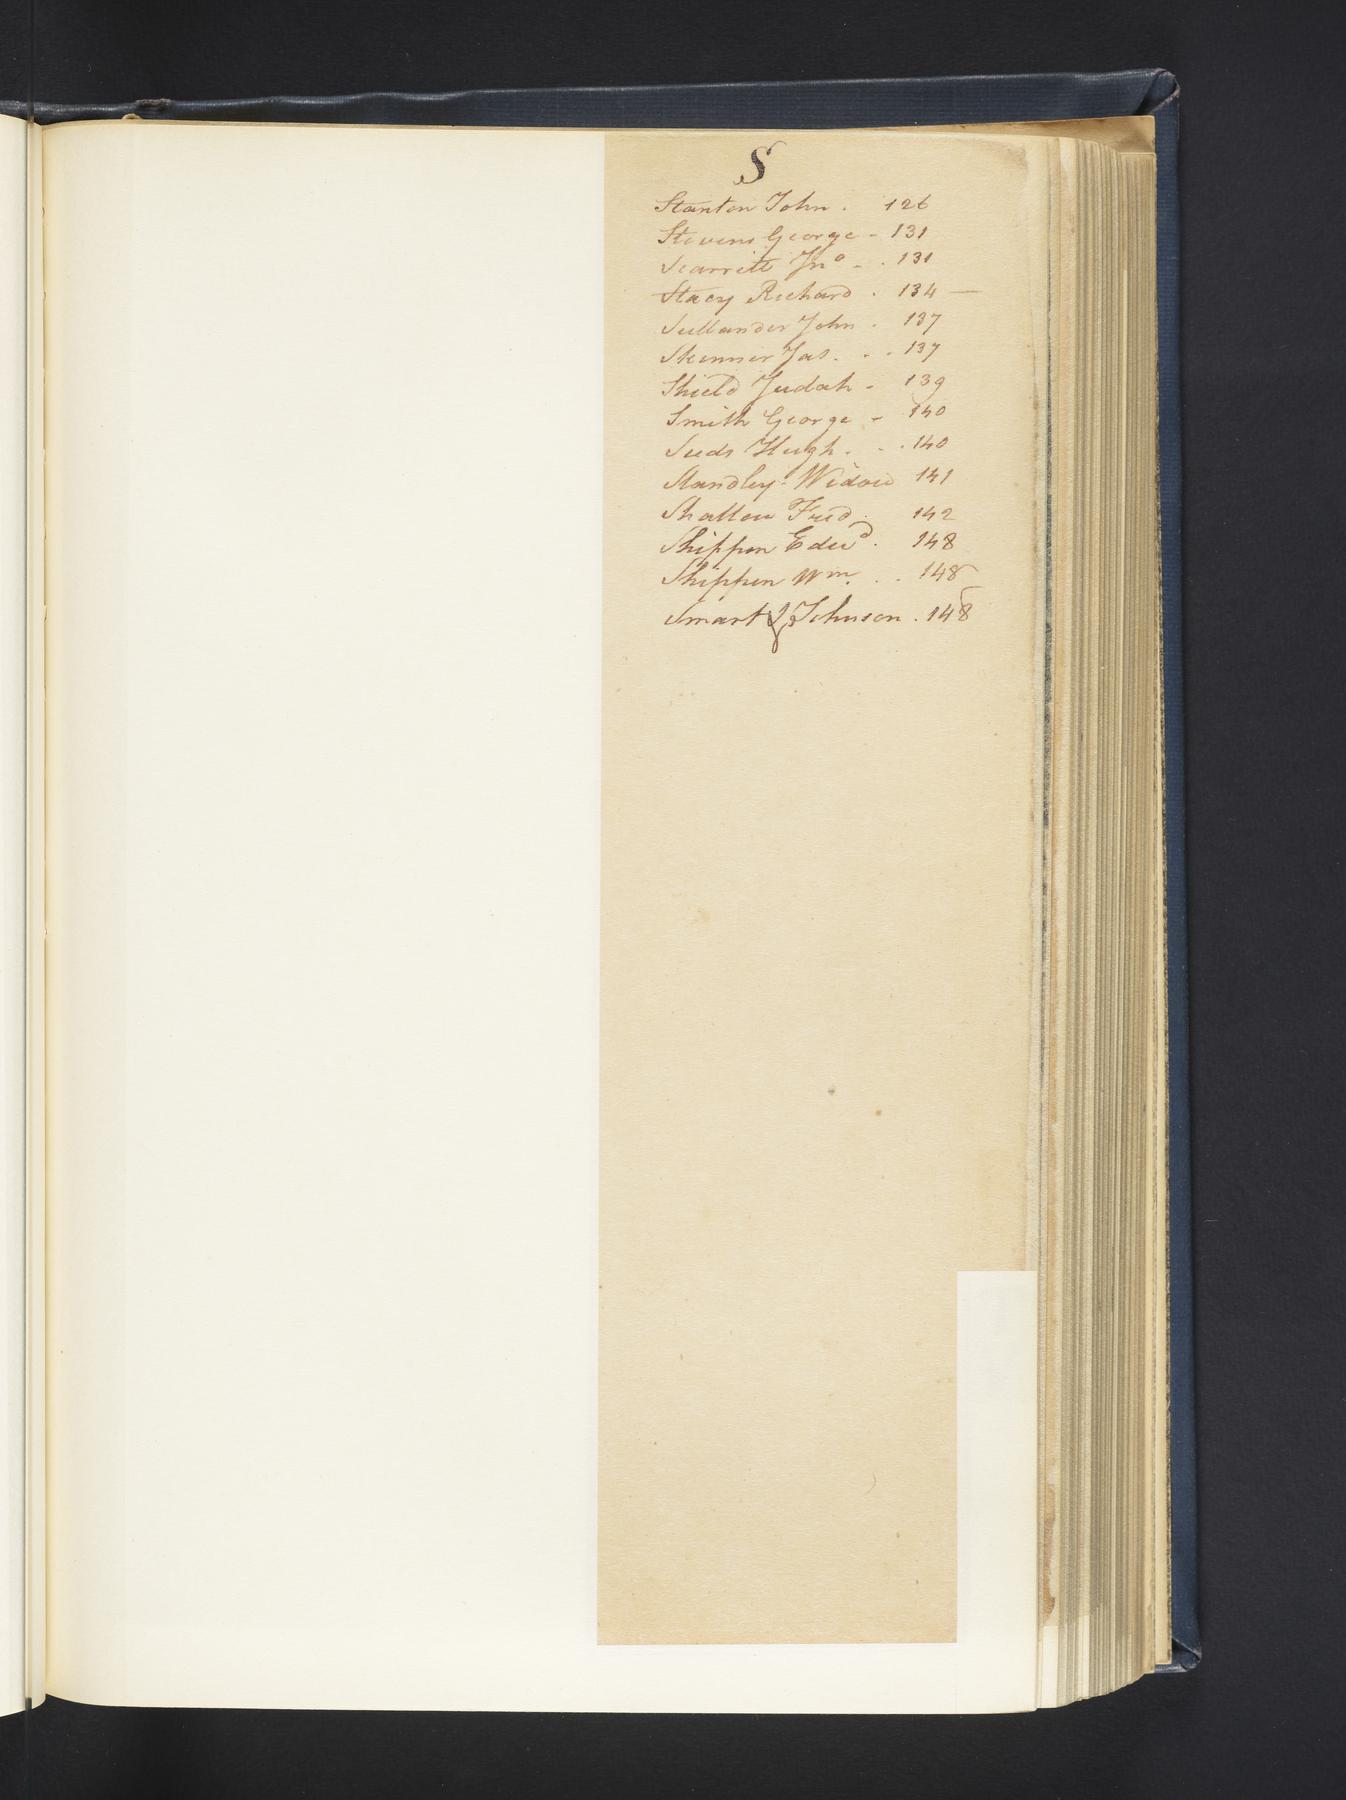 S
Stanton John . 126
Stevens George - 131
Scarritt Jno - . 131
Stacy Richard . 134 —
Sullander John . 137
Skinner Jas. . . 137
Shield Judah - 139
Smith George - 140
Suds Hugh . . . 140
Standley - Widow 141
Shallow Fred. 142
Shippen Edwd. 148
Shippen Wm. . . 148
Smart & Johnson . 148